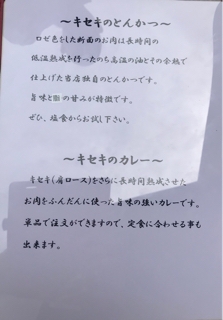 ～キセキのとんかつ～
ロゼ色をした断面のお肉は長時間の
低温熟成を行ったのち高温の油とその余熱で
仕上げた当店独自のとんかつです。
旨味と脂の甘みが特徴です。
ぜひ、塩食からお試し下さい。
～キセキのカレー～
キセキ(肩ロース)をさらに長時間熟成させた
お肉をふんだんに使った旨味の強いカレーです。
単品で注文ができますので、定食に合わせる事も
出来ます。